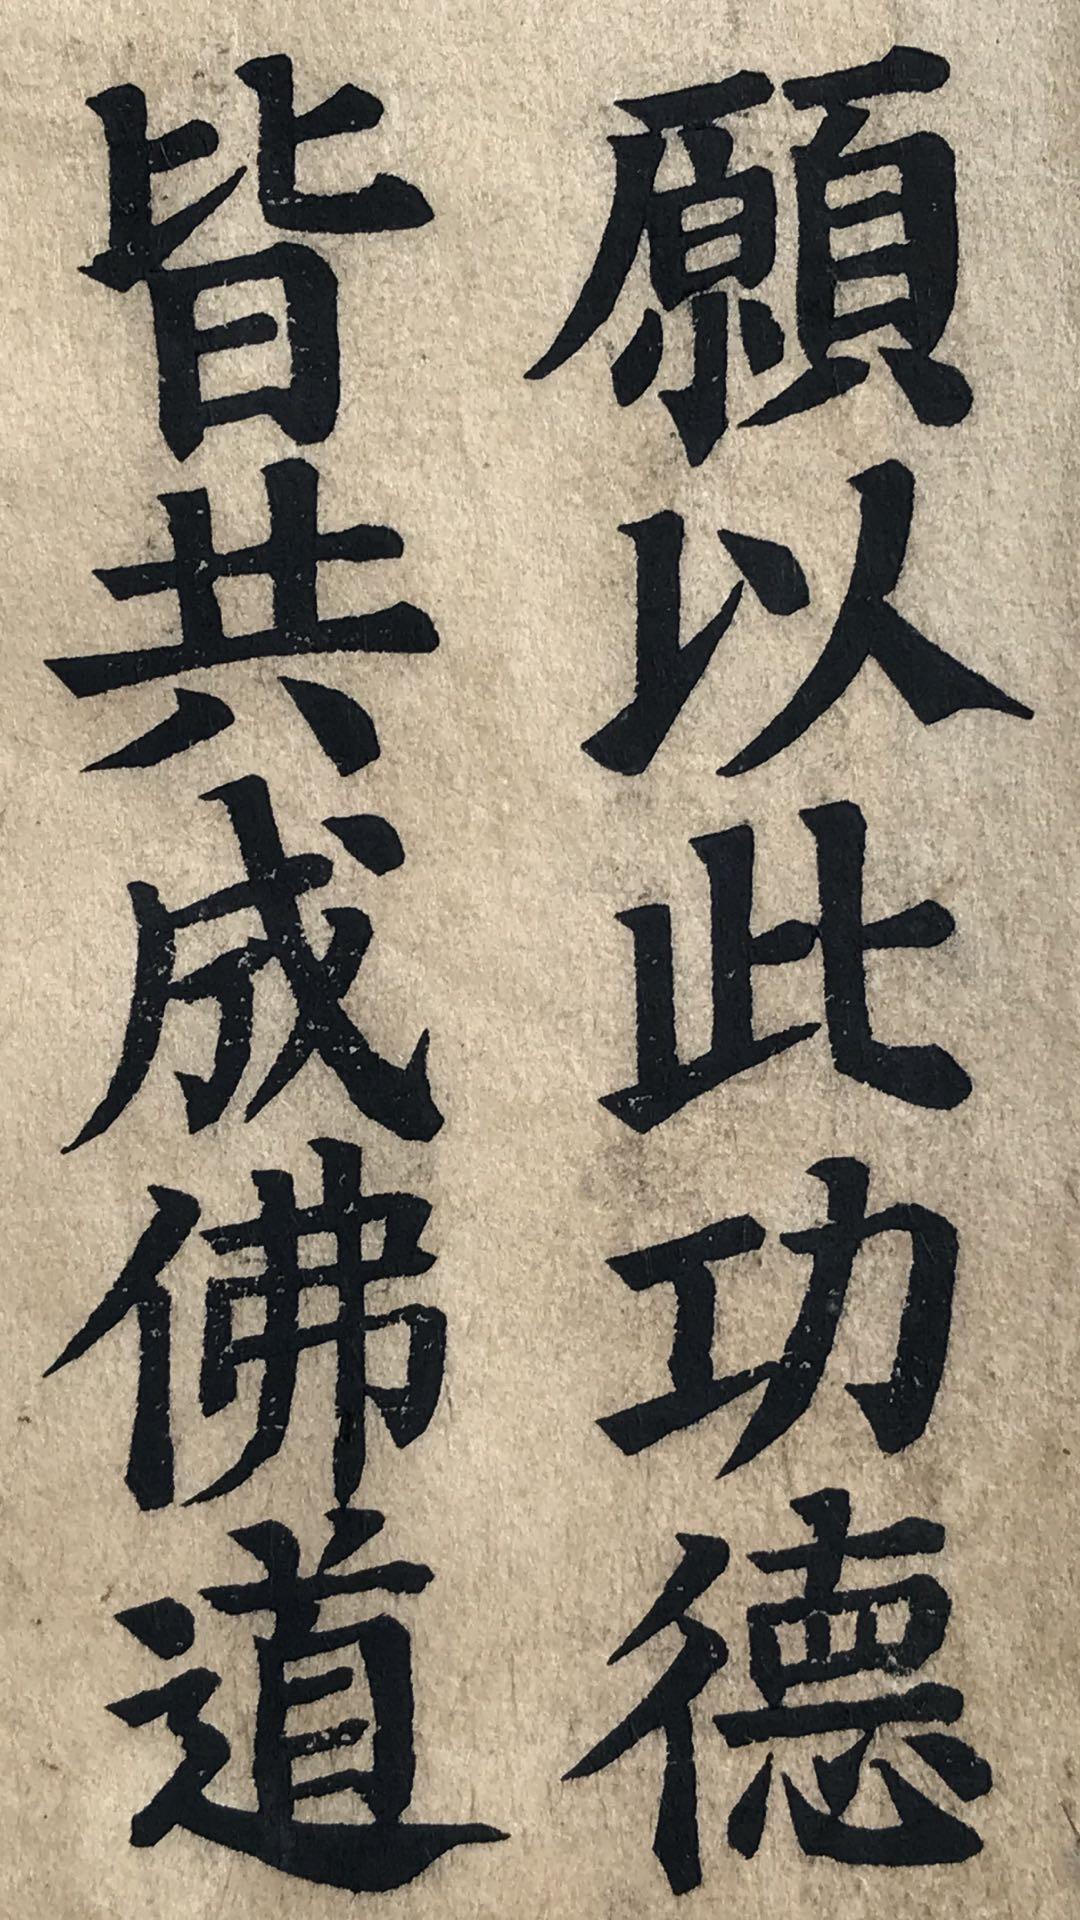 願以此功德
皆共成佛道